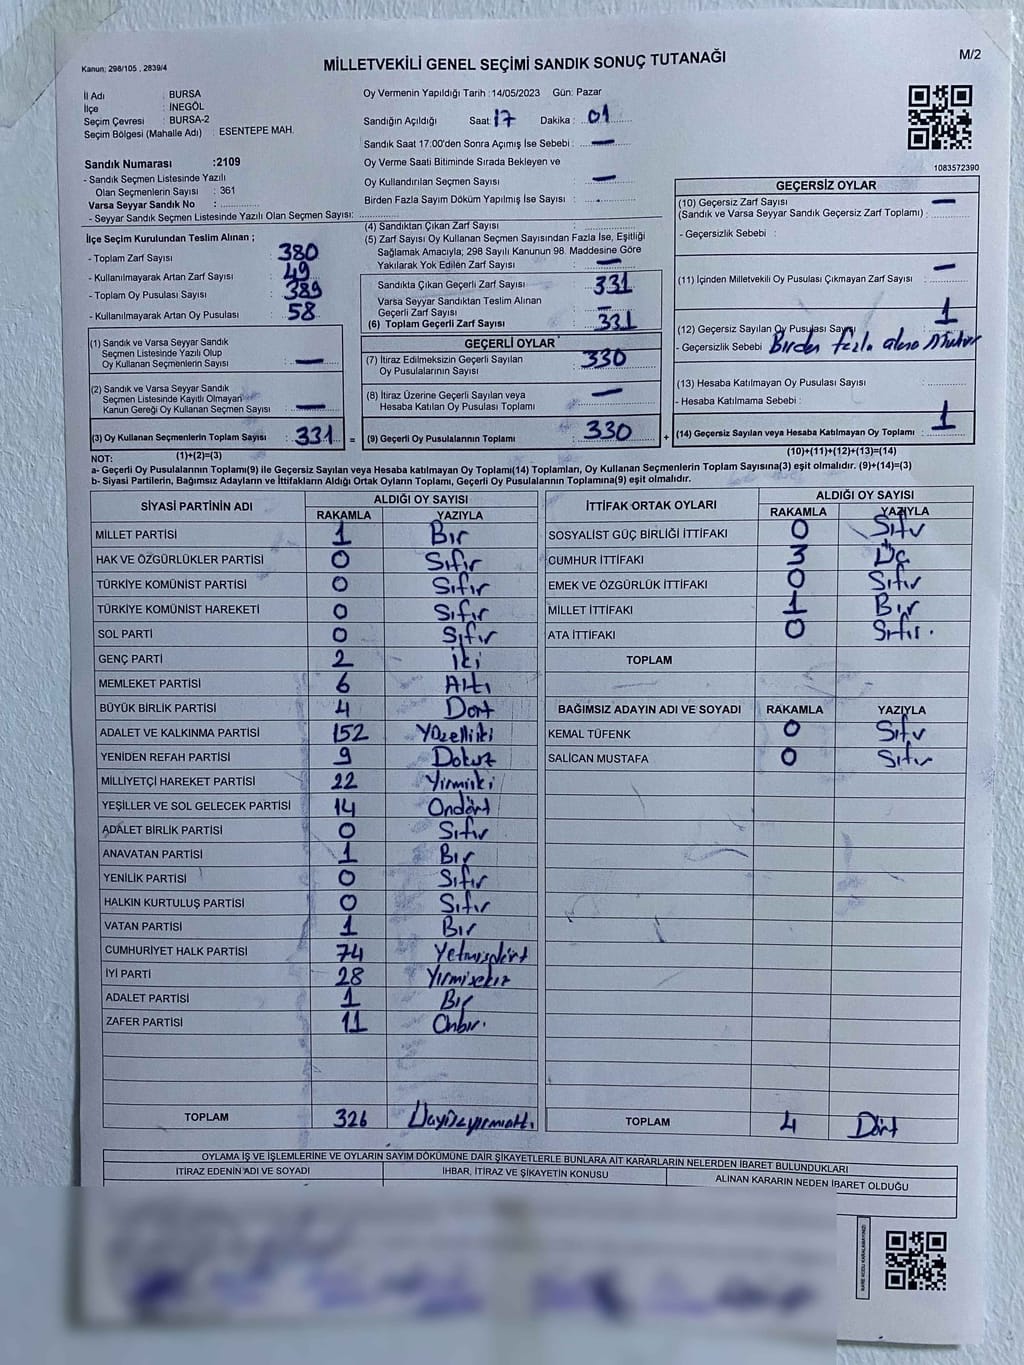 Kanun; 298/105 , 2839/4
MİLLETVEKİLİ GENEL SEÇİMİ SANDIK SONUÇ TUTANAĞI
M/2
İl Adı : BURSA
İlçe : İNEGÖL
Seçim Çevresi : BURSA-2
Seçim Bölgesi (Mahalle Adı) : ESENTEPE MAH.
Sandık Numarası :2109
- Sandık Seçmen Listesinde Yazılı
Olan Seçmenlerin Sayısı : 361
Varsa Seyyar Sandık No :
- Seyyar Sandık Seçmen Listesinde Yazılı Olan Seçmen Sayısı:
Oy Vermenin Yapıldığı Tarih :14/05/2023 Gün: Pazar
Sandığın Açıldığı Saat: 17 Dakika : 01
Sandık Saat 17:00'den Sonra Açımış İse Sebebi : —
Oy Verme Saati Bitiminde Sırada Bekleyen ve
Oy Kullandırılan Seçmen Sayısı : —
Birden Fazla Sayım Döküm Yapılmış İse Sayısı :
1083572390
İlçe Seçim Kurulundan Teslim Alınan ;
- Toplam Zarf Sayısı : 380
- Kullanılmayarak Artan Zarf Sayısı : 49
- Toplam Oy Pusulası Sayısı : 389
- Kullanılmayarak Artan Oy Pusulası : 58
(1) Sandık ve Varsa Seyyar Sandık
Seçmen Listesinde Yazılı Olup
Oy Kullanan Seçmenlerin Sayısı : —
(2) Sandık ve Varsa Seyyar Sandık
Seçmen Listesinde Kayıtlı Olmayan
Kanun Gereği Oy Kullanan Seçmen Sayısı : —
(3) Oy Kullanan Seçmenlerin Toplam Sayısı : 331 =
(1)+(2)=(3)
(4) Sandıktan Çıkan Zarf Sayısı :
(5) Zarf Sayısı Oy Kullanan Seçmen Sayısından Fazla İse, Eşitliği
Sağlamak Amacıyla; 298 Sayılı Kanunun 98. Maddesine Göre
Yakılarak Yok Edilen Zarf Sayısı : —
Sandıkta Çıkan Geçerli Zarf Sayısı : 331
Varsa Seyyar Sandıktan Teslim Alınan
Geçerli Zarf Sayısı : —
(6) Toplam Geçerli Zarf Sayısı : 331
GEÇERLİ OYLAR
(7) İtiraz Edilmeksizin Geçerli Sayılan
Oy Pusulalarının Sayısı : 330
(8) İtiraz Üzerine Geçerli Sayılan veya
Hesaba Katılan Oy Pusulası Toplamı : —
(9) Geçerli Oy Pusulalarının Toplamı : 330 +
GEÇERSİZ OYLAR
(10) Geçersiz Zarf Sayısı : —
(Sandık ve Varsa Seyyar Sandık Geçersiz Zarf Toplamı) :
- Geçersizlik Sebebi :
(11) İçinden Milletvekili Oy Pusulası Çıkmayan Zarf Sayısı : —
(12) Geçersiz Sayılan Oy Pusulası Sayısı : 1
- Geçersizlik Sebebi : Birden fazla alana Mühür
(13) Hesaba Katılmayan Oy Pusulası Sayısı :
- Hesaba Katılmama Sebebi :
(14) Geçersiz Sayılan veya Hesaba Katılmayan Oy Toplamı : 1
(10)+(11)+(12)+(13)=(14)
NOT:
a- Geçerli Oy Pusulalarının Toplamı(9) ile Geçersiz Sayılan veya Hesaba katılmayan Oy Toplamı(14) Toplamları, Oy Kullanan Seçmenlerin Toplam Sayısına(3) eşit olmalıdır. (9)+(14)=(3)
b- Siyasi Partilerin, Bağımsız Adayların ve İttifakların Aldığı Ortak Oyların Toplamı, Geçerli Oy Pusulalarının Toplamına(9) eşit olmalıdır.
SİYASİ PARTİNİN ADI ALDIĞI OY SAYISI
RAKAMLA YAZIYLA
MİLLET PARTİSİ 1 Bir
HAK VE ÖZGÜRLÜKLER PARTİSİ 0 Sıfır
TÜRKİYE KOMÜNİST PARTİSİ 0 Sıfır
TÜRKİYE KOMÜNİST HAREKETİ 0 Sıfır
SOL PARTİ 0 Sıfır
GENÇ PARTİ 2 İki
MEMLEKET PARTİSİ 6 Altı
BÜYÜK BİRLİK PARTİSİ 4 Dört
ADALET VE KALKINMA PARTİSİ 152 Yüzelliiki
YENİDEN REFAH PARTİSİ 9 Dokuz
MİLLİYETÇİ HAREKET PARTİSİ 22 Yirmiiki
YEŞİLLER VE SOL GELECEK PARTİSİ 14 Ondört
ADALET BİRLİK PARTİSİ 0 Sıfır
ANAVATAN PARTİSİ 1 Bir
YENİLİK PARTİSİ 0 Sıfır
HALKIN KURTULUŞ PARTİSİ 0 Sıfır
VATAN PARTİSİ 1 Bir
CUMHURİYET HALK PARTİSİ 74 Yetmişdört
İYİ PARTİ 28 Yirmisekiz
ADALET PARTİSİ 1 Bir
ZAFER PARTİSİ 11 Onbir.
TOPLAM 326 Üçyüzyirmialtı
İTTİFAK ORTAK OYLARI ALDIĞI OY SAYISI
RAKAMLA YAZIYLA
SOSYALİST GÜÇ BİRLİĞİ İTTİFAKI 0 Sıfır
CUMHUR İTTİFAKI 3 Üç
EMEK VE ÖZGÜRLÜK İTTİFAKI 0 Sıfır
MİLLET İTTİFAKI 1 Bir
ATA İTTİFAKI 0 Sıfır.
TOPLAM
BAĞIMSIZ ADAYIN ADI VE SOYADI RAKAMLA YAZIYLA
KEMAL TÜFENK 0 Sıfır
SALİCAN MUSTAFA 0 Sıfır
TOPLAM 4 Dört
OYLAMA İŞ VE İŞLEMLERİNE VE OYLARIN SAYIM DÖKÜMÜNE DAİR ŞİKAYETLERLE BUNLARA AİT KARARLARIN NELERDEN İBARET BULUNDUKLARI
İTİRAZ EDENİN ADI VE SOYADI İHBAR, İTİRAZ VE ŞİKAYETİN KONUSU ALINAN KARARIN NEDEN İBARET OLDUĞU